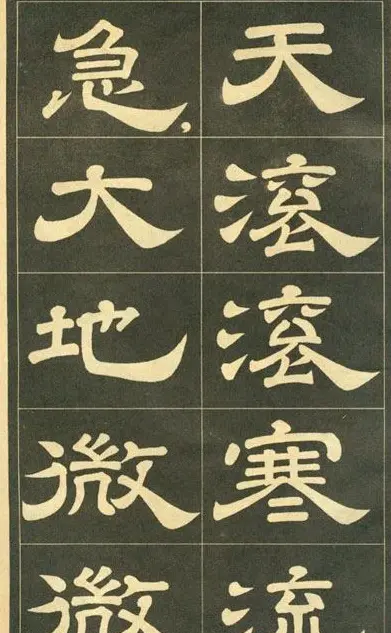 天滚滚寒流
急,大地微微